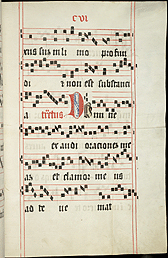 C VI
xus sum in li mo profun
di et non est substanci
a Tractus Do mi ne
ex audi orationem me
et clamor me us
ad te ve niat